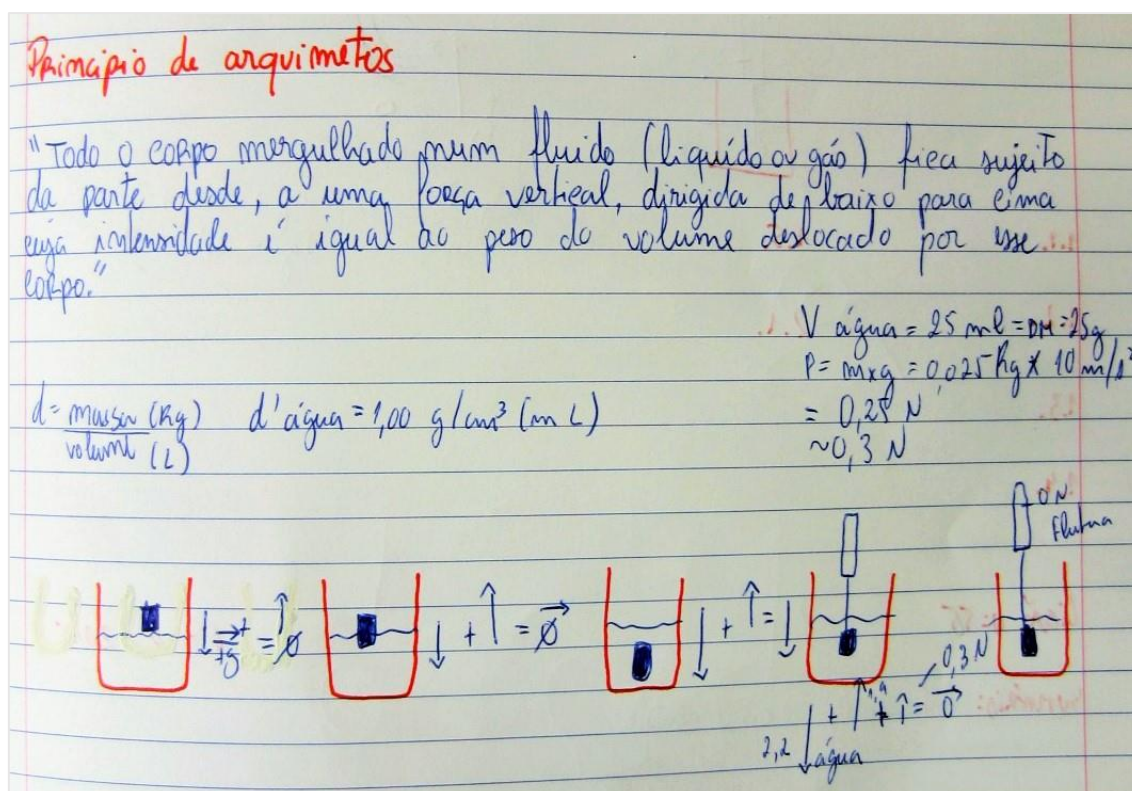 Principio de arquimetos
"Todo o corpo mergulhado num fluido (liquído ou gás) fica sujeito
da parte desde, a uma força vertical, dirigida de baixo para cima
cuja intensidade é igual ao peso do volume deslocado por esse
corpo."
V água = 25 ml = DM = 25g
P = m x g = 0,025 Kg x 10 m/s²
= 0,25 N
~0,3 N
d = massa (Kg) d'água = 1,00 g/cm³ (m L)
volume (L)
0N
Flutua
+ = 0
+ = 0
+ =
0,3 N
+ + = 0
2,2 água